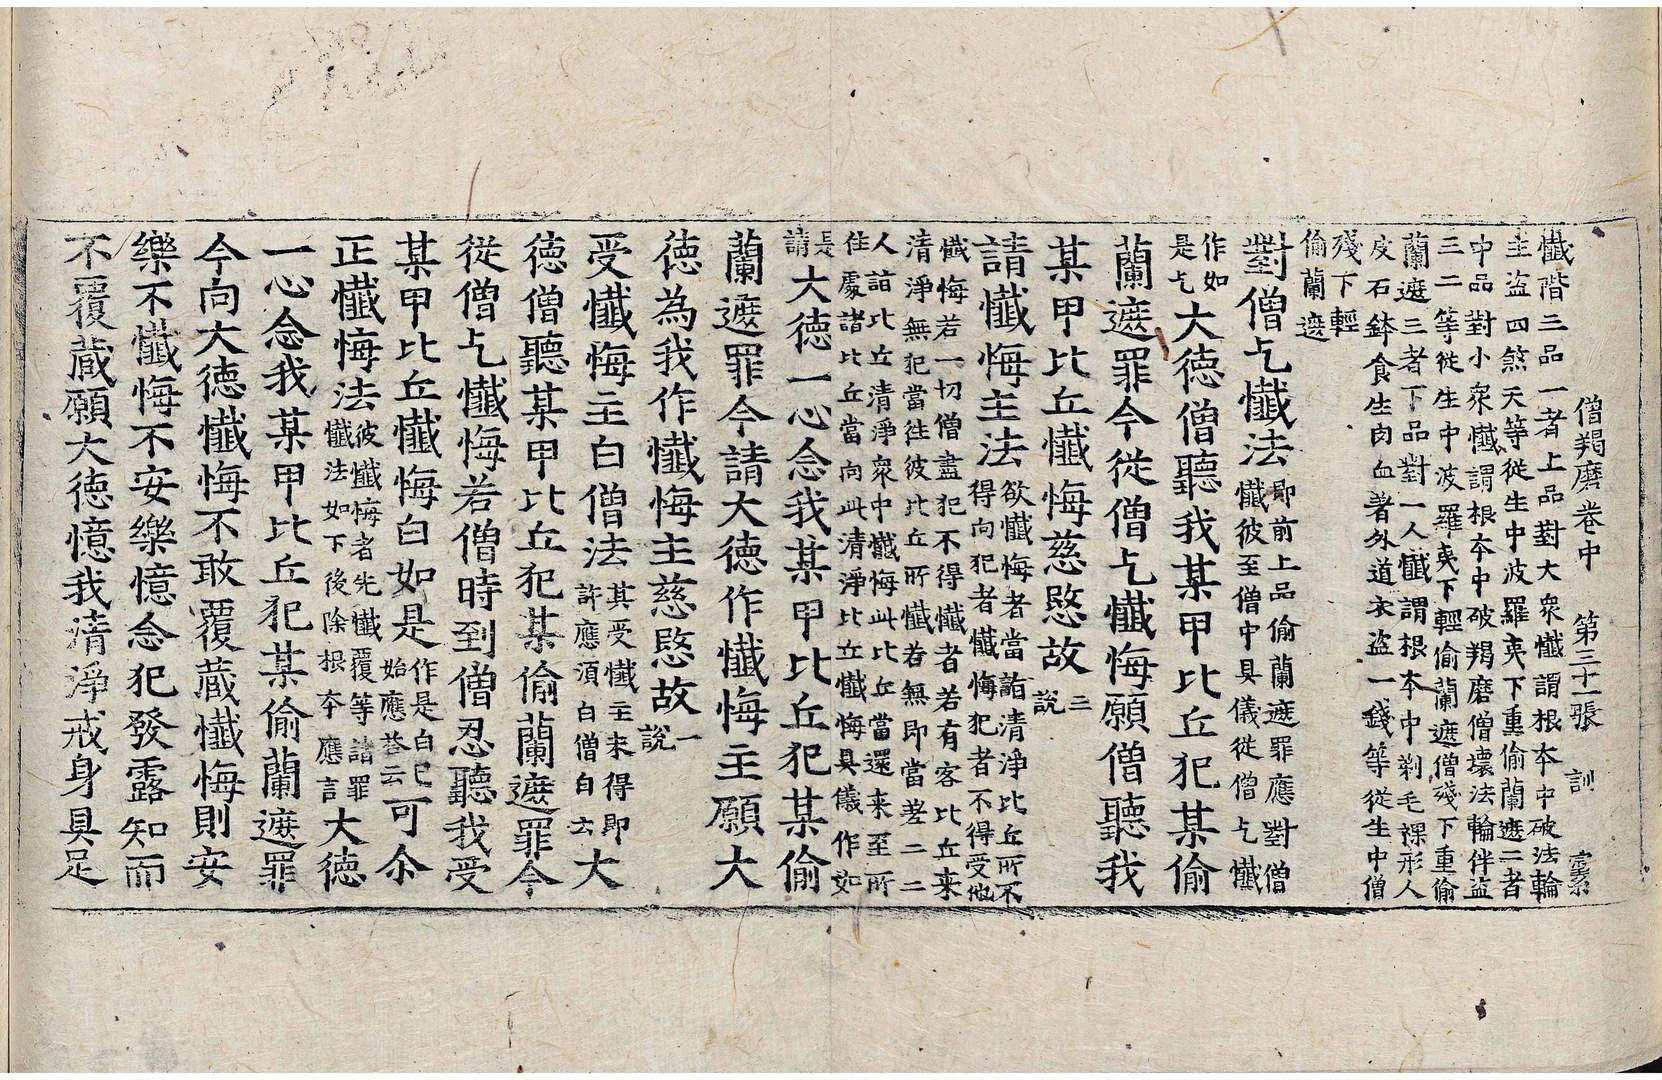 僧羯磨卷中　第三十一張　訓
懺階三品一者上品對大衆懺謂根夲中破法輪
主盗四煞天等從生中波羅夷下重偷蘭遮二者
中品對小衆懺謂根夲中破羯磨僧壞法輪伴盗
三二等從生中波羅夷下輕偷蘭遮僧殘下重偷
蘭遮三者下品對一人懺謂根夲中剃毛裸形人
皮石鉢食生肉血著外道衣盗一錢等從生中僧
殘下輕
偷蘭遮
對僧乞懺法即前上品偷蘭遮罪應對僧懺彼至僧中具儀從僧乞懺
作如是乞大德僧聽我某甲比丘犯某偷
蘭遮罪今從僧乞懺悔願僧聽我
某甲比丘懺悔慈愍故三說
請懺悔主法欲懺悔者當詣清淨比丘所不得向犯者懺悔犯者不得受他
懺悔若一切僧盡犯不得懺者若有客比丘来
清淨無犯當往彼比丘所懺若無即當差二三
人詣比丘清淨衆中懺悔此比丘當還来至所
住處諸比丘當向此清淨比丘懺悔具儀作如
是請大德一心念我某甲比丘犯某偷
蘭遮罪今請大德作懺悔主願大
德為我作懺悔主慈愍故一說
受懺悔主白僧法其受懺主未得即許應須白僧白云大
德僧聽某甲比丘犯某偷蘭遮罪今
從僧乞懺悔若僧時到僧忍聽我受
某甲比丘懺悔白如是作是白已始應荅云可尒
正懺悔法彼懺悔者先懺覆等諸罪懺法如下後除根夲應言大德
一心念我某甲比丘犯某偷蘭遮罪
今向大德懺悔不敢覆蔵懺悔則安
樂不懺悔不安樂憶念犯發露知而
不覆蔵願大德憶我清淨戒身具足